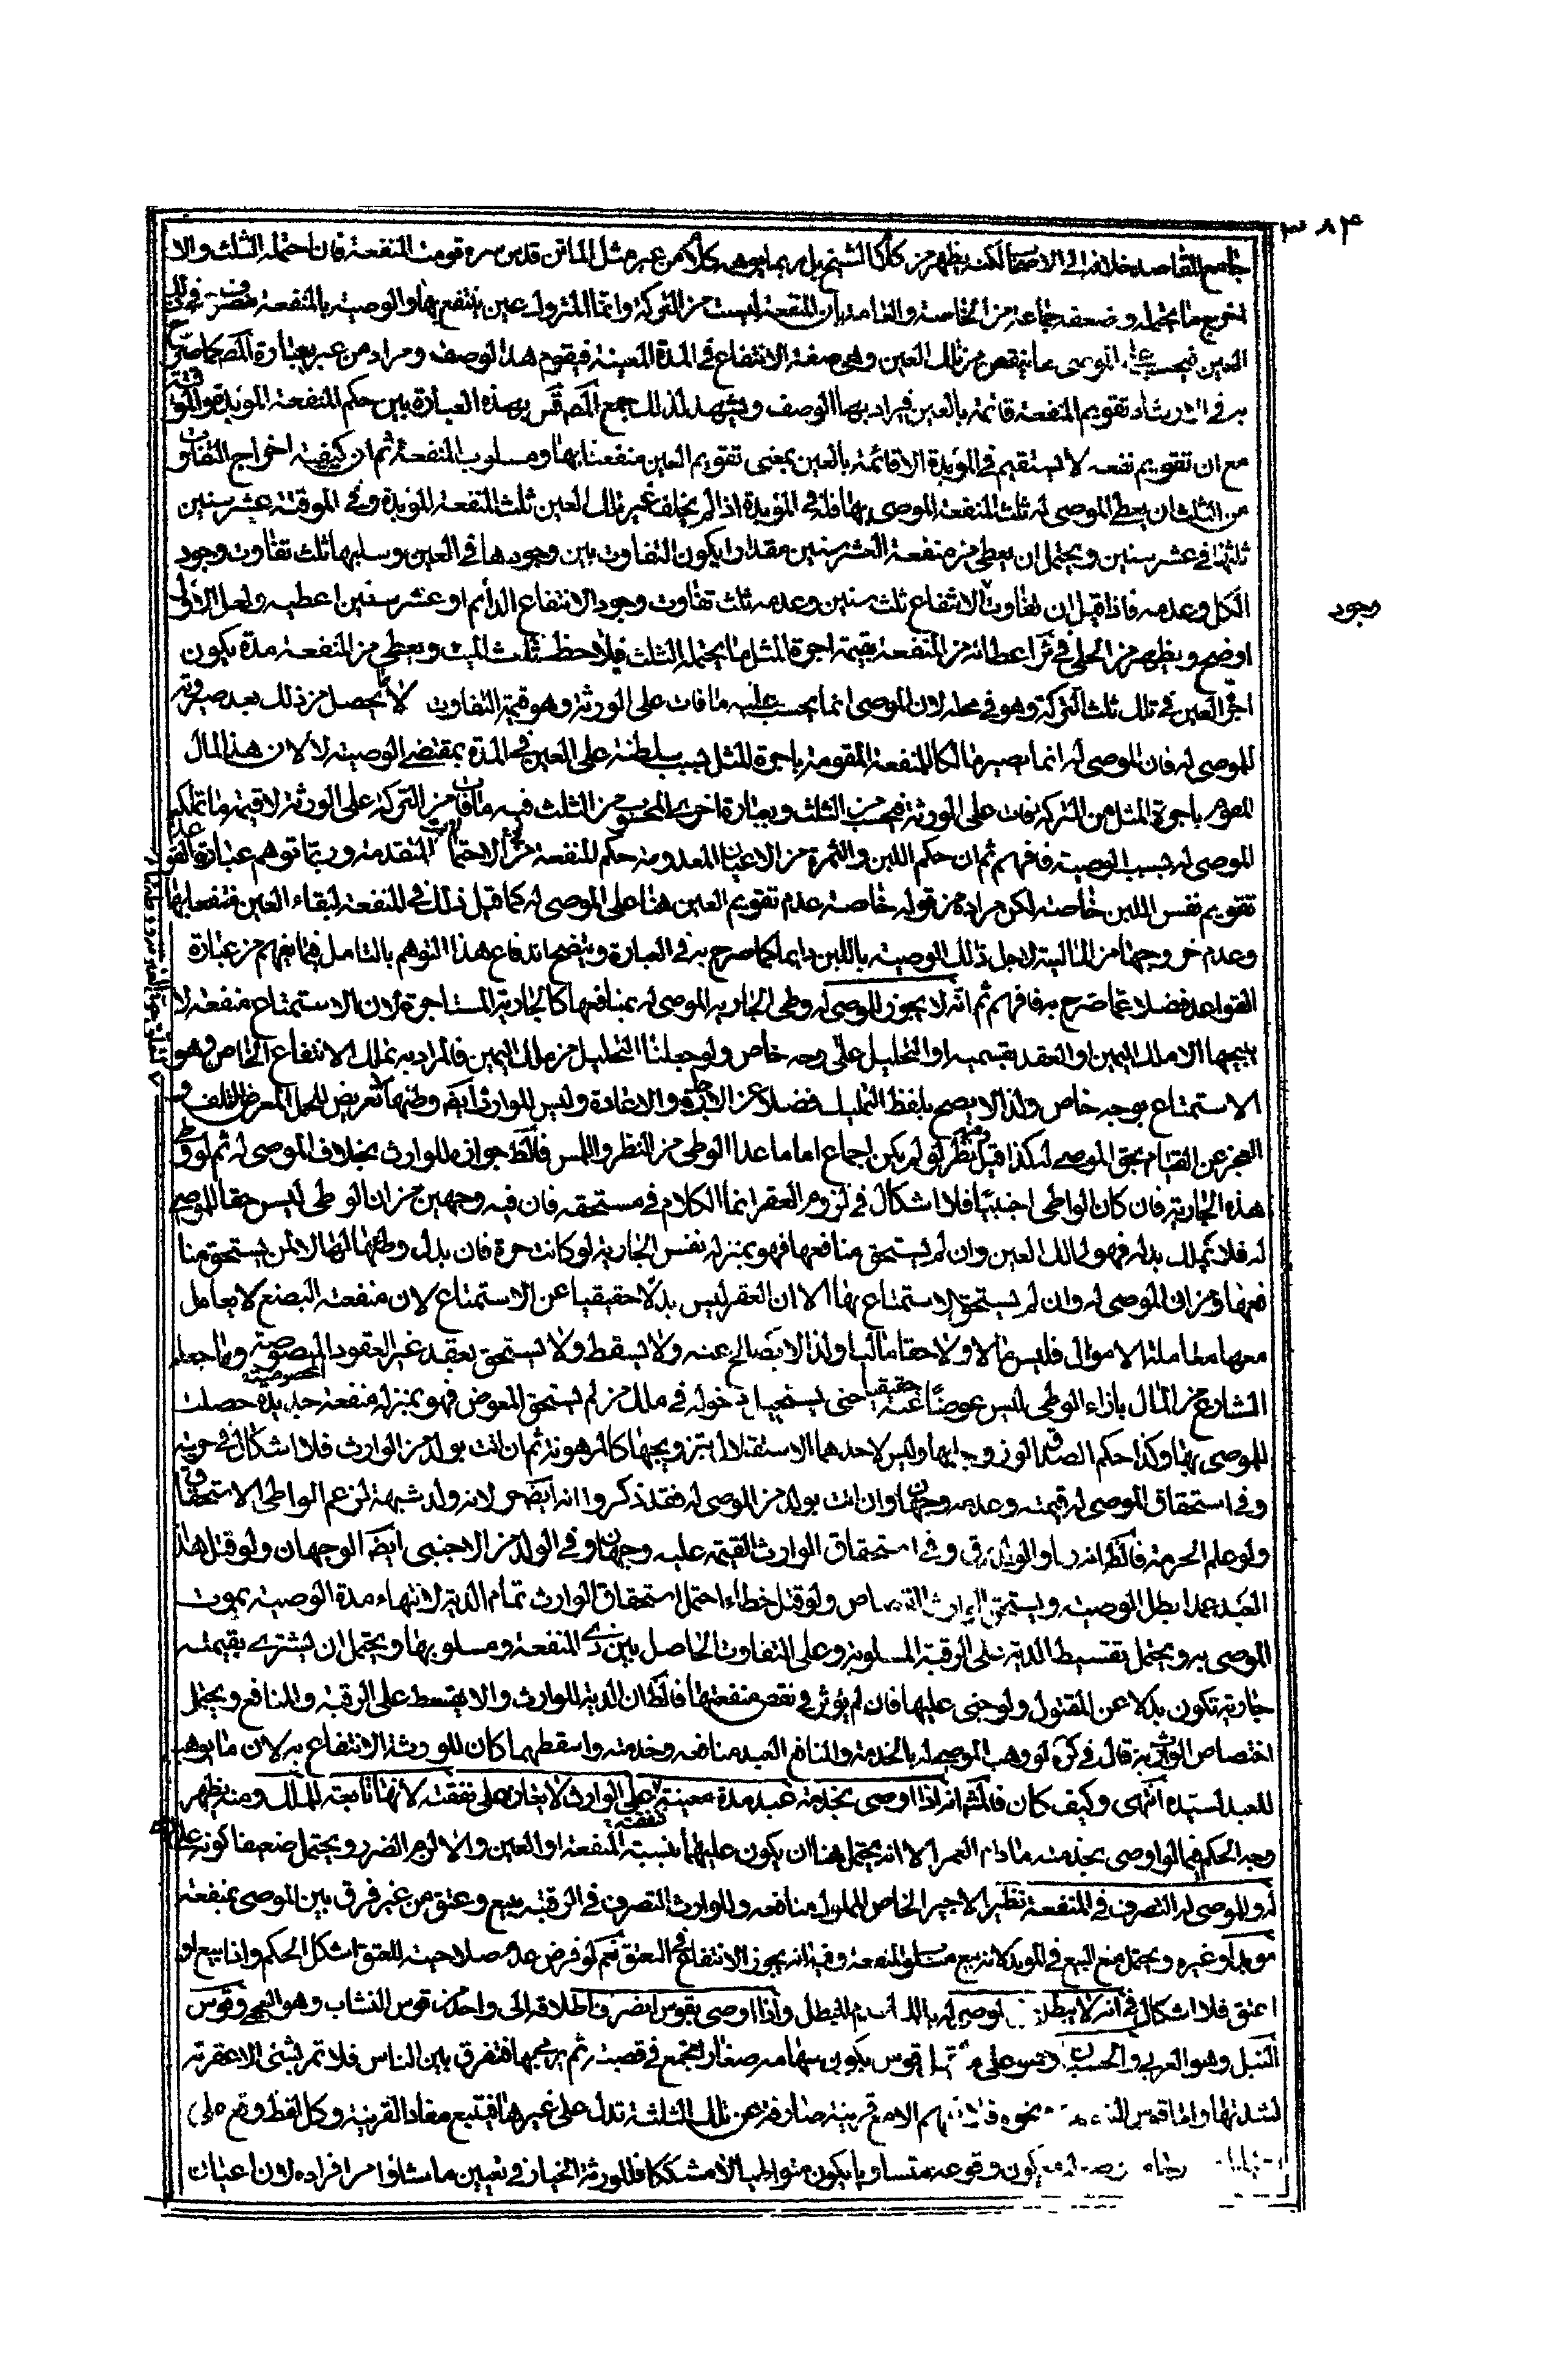 ٣٨٤
جامع المقاصد خلافه الى الاصحاب لكن يظهر من كلام الشيخ بل ربما يوهمه كلام من عبر مثل الماتن قدس سره قومت المنفعة فان احتملها الثلث والا
اخرج ما يحتمله وضعفه جماعة من الخاصة والعامة بان المنفعة ليست من التركة وانما المتروك عين ينتفع بها والوصية بالمنفعة تصرف في تلك
العين فيحسب على الموصى ما ينقص من تلك العين وهي صفة الانتفاع في المدة المعينة فيقوم هذا الوصف ومراد من عبر بعبارة المص كما صرح
به في الارشاد تقويم المنفعة قائمة بالعين فيراد بها الوصف ويشهد لذلك جمع المص قس بهذه العبارة بين حكم المنفعة المؤبدة والموقتة
مع ان تقويم نفسه لا يستقيم في المؤبدة الا قائمة بالعين بمعنى تقويم العين منتفعا بها ومسلوب المنفعة ثم ان كيفية اخراج التفاوت
من الثلث ان يعطى الموصى له ثلث المنفعة الموصى بها فله في المؤبدة اذا لم يخلف غير تلك العين ثلث المنفعة المؤبدة وفي الموقتة عشر سنين
ثلثها في عشر سنين ويحتمل ان يعطى من منفعة العشر سنين مقدارا يكون التفاوت بين وجودها في العين وسلبها ثلث تفاوت وجود
الكل وعدمه فاذا قيل ان تفاوت الانتفاع ثلث سنين وعدمه ثلث تفاوت وجود الانتفاع الدائم او عشر سنين اعطيه ولعل الاولى
وجود
اوضح ويظهر من الحلي في ئر اعطائه من المنفعة بقيمة اجرة المثل ما يحتمله الثلث فيلاحظ ثلث الميت ويعطى من المنفعة مدة يكون
اجرة العين في تلك ثلث التركة وهو في محله لان الموصى انما يحسب عليه ما فات على الورثة وهو قيمة التفاوت لا ما يحصل من ذلك بعد صيرورته
للموصى له فان الموصى له انما يصير مالكا للمنفعة المقومة باجرة المثل بسبب سلطنته على العين في المدة بمقتضى الوصية لا لان هذا المال
المقوم باجرة المثل من التركة فات على الورثة فيحسب من الثلث وبعبارة اخرى المحسوب من الثلث قيمة ما فات من التركة على الورثة لا قيمة ما تملكه
الموصى له بسبب الوصية فافهم ثم ان حكم اللبن والثمرة من الاعيان المعدومة حكم المنفعة في الاحتمالات المتقدمة وربما توهم عبارة القواعد
تقويم نفس اللبن خاصة لكن مراده من قوله خاصة عدم تقويم العين هنا على الموصى له كما قيل ذلك في المنفعة لبقاء العين منتفعا بها
وعدم خروجها من المالية لاجل ذلك الوصية باللبن دايما كما صرح به في العبارة ويتضح اندفاع هذا التوهم بالتامل فيما يفهم من عبارة
القواعد فضلا عما صرح به فافهم ثم انه لا يجوز للموصى له وطي الجارية الموصى له بمنافعها كالجارية المستاجرة لان الاستمتاع منفعة لا
يبيحها الا ملك اليمين او العقد بقسميه او التحليل على وجه خاص ولو جعلنا التحليل من ملك اليمين فالمراد به تملك الانتفاع الخاص وهو
الاستمتاع بوجه خاص ولذا لا يصح بلفظ التمليك فضلا عن الاجارة والاعارة وليس للوارث ايضا وطئها لانه تعريض للحمل المعرض للتلف و
العجز عن القيام بحق الموصى له كذا قيل وفيه نظر لو لم يكن اجماع اما ما عدا الوطي من النظر واللمس فالظ جوازه للوارث بخلاف الموصى له ثم لو وطئ
هذه الجارية فان كان الواطي اجنبيا فلا اشكال في لزوم العقر انما الكلام في مستحقه فان فيه وجهين من ان الوطي ليس حقا للموصى
له فلا يملك بدله فهو لمالك العين وان لم يستحق منافعها فهو بمنزلة نفس الجارية لو كانت حرة فان بدل وطئها لها لا لمن يستحق منا
فعها ومن ان الموصى له وان لم يستحق الاستمتاع بها الا ان العقر ليس بدلا حقيقيا عن الاستمتاع لان منفعة البضع لا يعامل
معها معاملة الاموال فليس مالا ولا حقا ماليا ولذا لا يصالح عنه ولا يسقط ولا يستحق بعقد غير العقود المخصوصة وما جعله
الشارع من المال بازاء الوطي ليس عوضا عنه حقيقيا حتى يستحيل دخوله في ملك من لم يستحق المعوض فهو بمنزلة منفعة جديدة حصلت
للموصى بها وكذا حكم الصداق لو زوجاها وليس لاحدهما الاستقلال بتزويجها كالمرهونة ثم ان اتت بولد من الوارث فلا اشكال في حريته
وفي استحقاق الموصى له قيمته وعدمه وجهان وان اتت بولد من الموصى له فقد ذكروا انه ايضا حر لانه ولد شبهة لزعم الواطي الاستحقاق
ولو علم الحرمة فالظ انه زنا والولد رق وفي استحقاق الوارث القيمة عليه وجهان وفي الولد من الاجنبي ايضا الوجهان ولو قتل هذا
العبد عمدا بطل الوصية ويستحق الوارث القصاص ولو قتل خطاء احتمل استحقاق الوارث تمام الدية لانتهاء مدة الوصية بموت
الموصى به ويحتمل تقسيط الدية على الرقبة المسلوبة وعلى التفاوت الحاصل بين ذي المنفعة ومسلوبها ويحتمل ان يشترى بقيمته
جارية تكون بدلا عن المقتول ولو جنى عليها فان لم يؤثر في نقص منفعتها فالظ ان الدية للوارث والا يقسط على الرقبة والمنافع ويحتمل
اختصاص الوارث به قال في كره لو وهب الموصى له بالخدمة والمنافع العبد منافعه وخدمته واسقطهما كان للورثة الانتفاع به لان ما يوهب
للعبد لسيده انتهى وكيف كان فالمش انه اذا اوصى بخدمة عبد مدة معينة فنفقته على الوارث لا يخاف على نفقته لانها تابعة للملك ومنه يظهر
وجه الحكم فيما لو اوصى بخدمته ما دام العمر الا انه يحتمل هنا ان يكون عليهما بنسبة المنفعة او العين والا لزم الضرر ويحتمل ضعيفا كونه على الموصى
له وللموصى له التصرف في المنفعة نظير الاجير الخاص المملوك منافعه وللوارث التصرف في الرقبة ببيع وعتق من غير فرق بين الموصى بمنفعته
مؤبدا وغيره ويحتمل منع البيع في المؤبد لانه بيع مسلوب المنفعة وفيه انه يجوز الانتفاع في العتق نعم لو فرض عدم صلاحيته للعتق اشكل الحكم واذا بيع او
اعتق فلا اشكال في انه لا يبطل الموصى له واذا اوصى بقوس انصرف اطلاقه الى واحد من قوس النشاب وهو العجمي وقوس
النبل وهو العربي والحسبان وهو على قوس يكون سهامه صغار يجتمع في قصبة ثم يرمى بها فتفرق بين الناس فلا تمر بشئ الا عقرته
لشدتها واما قوس ونحوه فلا يفهم الا مع قرينة صارفة عن تلك الثلثة تدل على غيرها فيتبع مفاد القرينة وكل لفظ وقع على
يكون وقوعه متساويا يكون متواطيا لا مشككا فللورثة الخيار في تعيين ما شاؤا من افراده لان اعيان